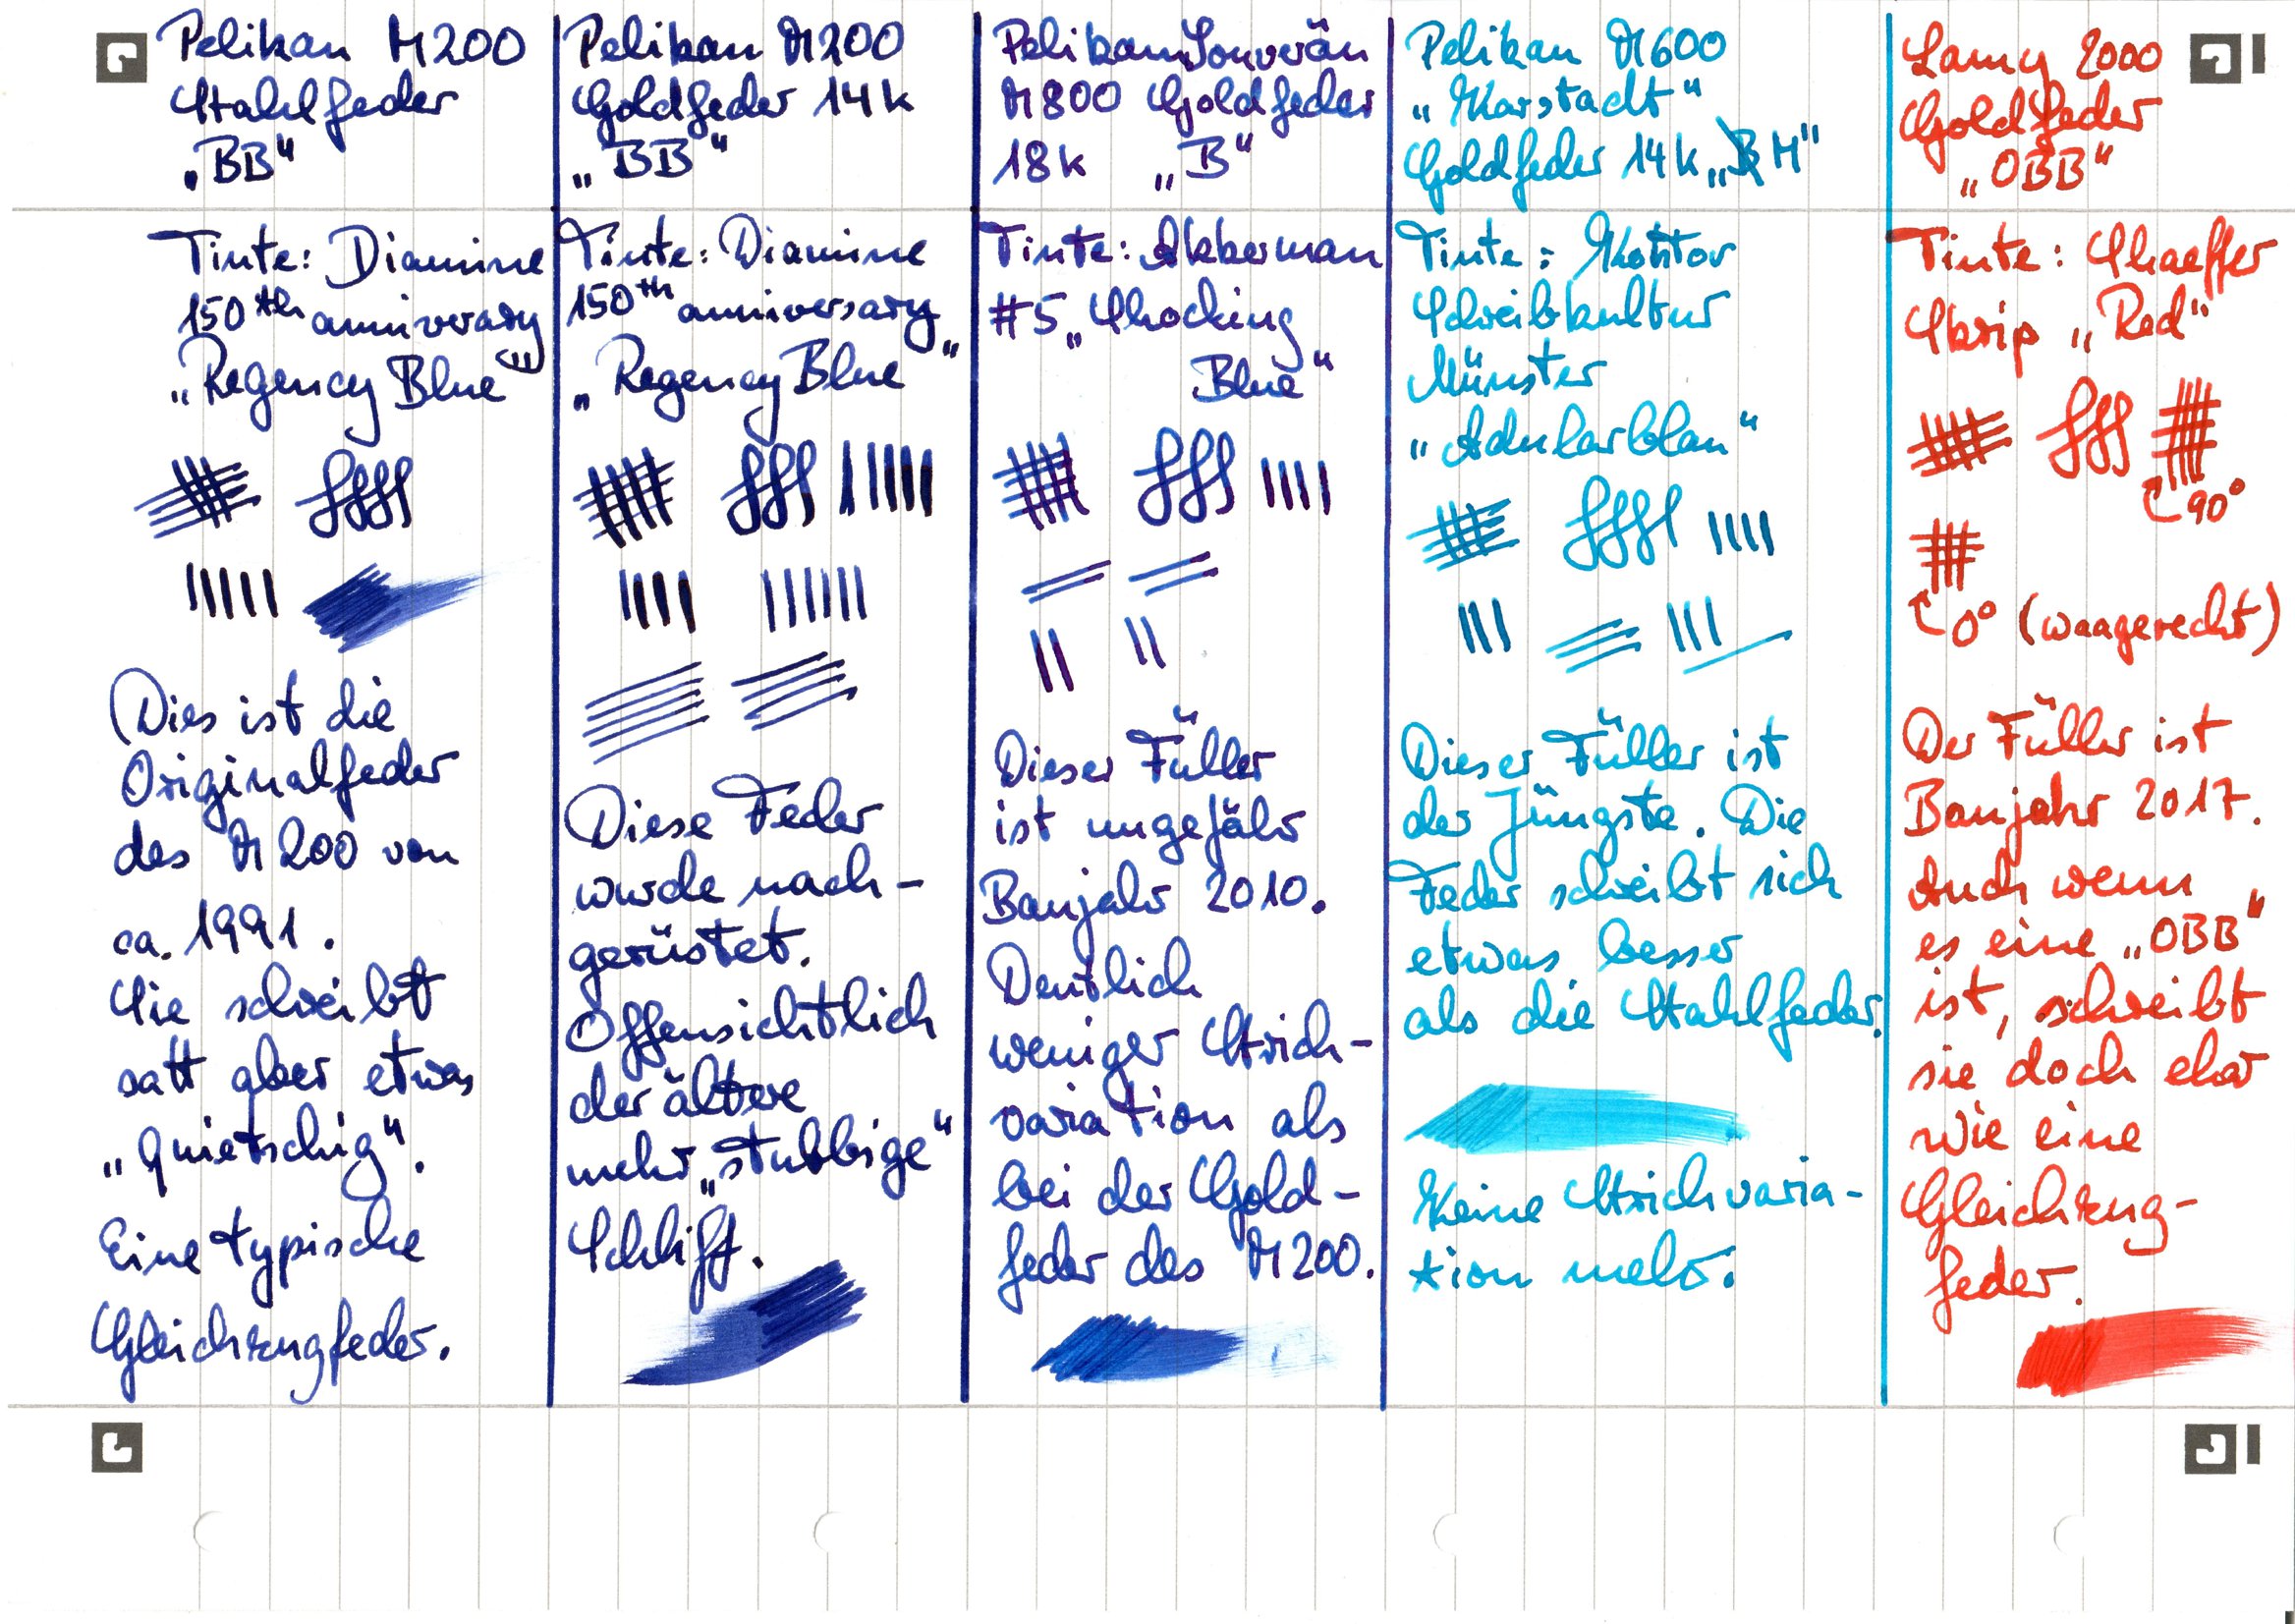 Pelikan M200
Stahlfeder
„BB“
Tinte: Diamine
150th anniverary
„Regency Blue“
Dies ist die
Originalfeder
des M200 von
ca. 1991.
Sie schreibt
satt aber etwas
„quietschig“.
Eine typische
Gleichzugfeder.
Pelikan M200
Goldfeder 14k
„BB“
Tinte: Diamine
150th anniversary
„Regency Blue“
Diese Feder
wurde nach-
gerüstet.
Offensichtlich
der ältere
mehr „stubbige“
Schliff.
Pelikan Souverän
M800 Goldfeder
18k „B“
Tinte: Akkerman
#5 „Shocking
Blue“
Dieser Füller
ist ungefähr
Baujahr 2010.
Deutlich
weniger Strich-
variation als
bei der Gold-
feder des M200.
Pelikan M600
„Karstadt“
Goldfeder 14k „M“
Tinte: Kontor
Schreibkultur
Münster
„Adularblau“
Dieser Füller ist
der Jüngste. Die
Feder schreibt sich
etwas besser
als die Stahlfeder.
Keine Strichvaria-
tion mehr.
Lamy 2000
Goldfeder
„OBB“
Tinte: Shaeffer
Skrip „Red“
90°
0° (waagerecht)
Der Füller ist
Baujahr 2017.
Auch wenn
es eine „OBB“
ist, schreibt
sie doch eher
wie eine
Gleichzug-
feder.